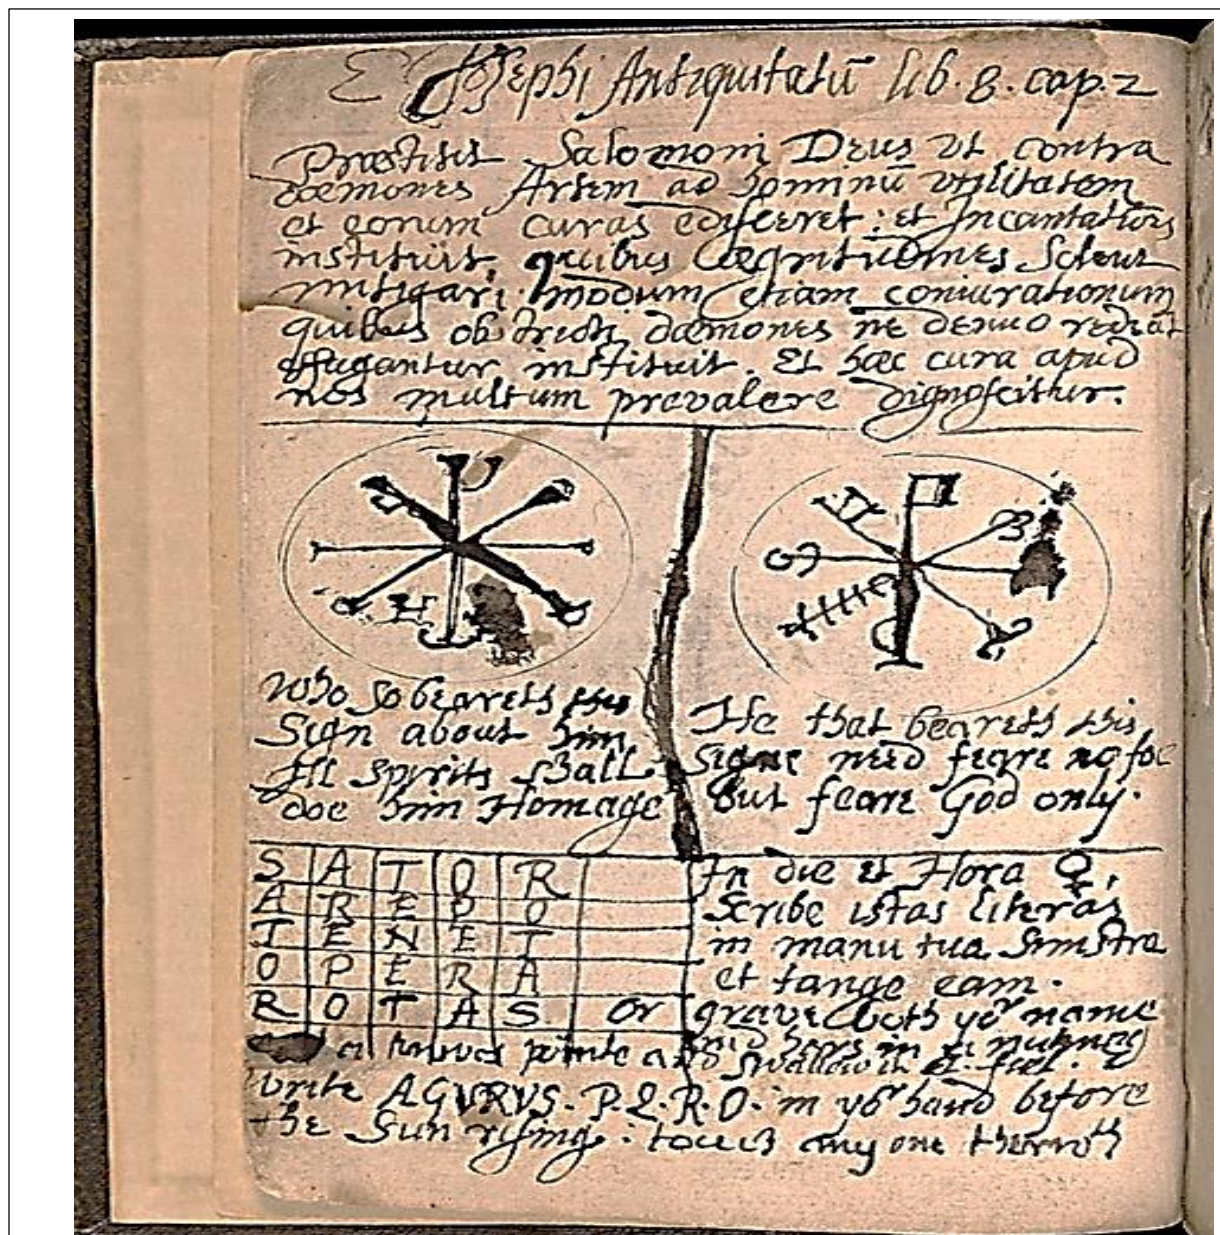 E Josephi Antiquitatū lib. 8. cap. 2
Præstitit Salomoni Deus vt contra
dæmones Artem ad hominū vtilitatem
et eorum curas edisceret: et Incantationes
instituit, quibus Aegritudines solent
mitigari. modum etiam coniurationum
quibus obstricti dæmones ne denuo redeāt
effugantur instituit. Et hæc cura apud
nos multum prevalere dignoscitur.
Who so beareth this
Sign about him
All spirits shall
doe him Homage
He that beareth this
signe need feare no foe
but feare God only.
S A T O R
A R E P O
T E N E T
O P E R A
R O T A S or
In die et Hora ♀,
Scribe istas literas
in manu tua sinistra
et tange eam.
grave both yoʳ name
and hers in a nutmeg
a pinte and swallow it et fiet.
Write AGVRVS. P.L.R.O. in yoʳ hand before
the Sun rising: touch any one therwᵗʰ